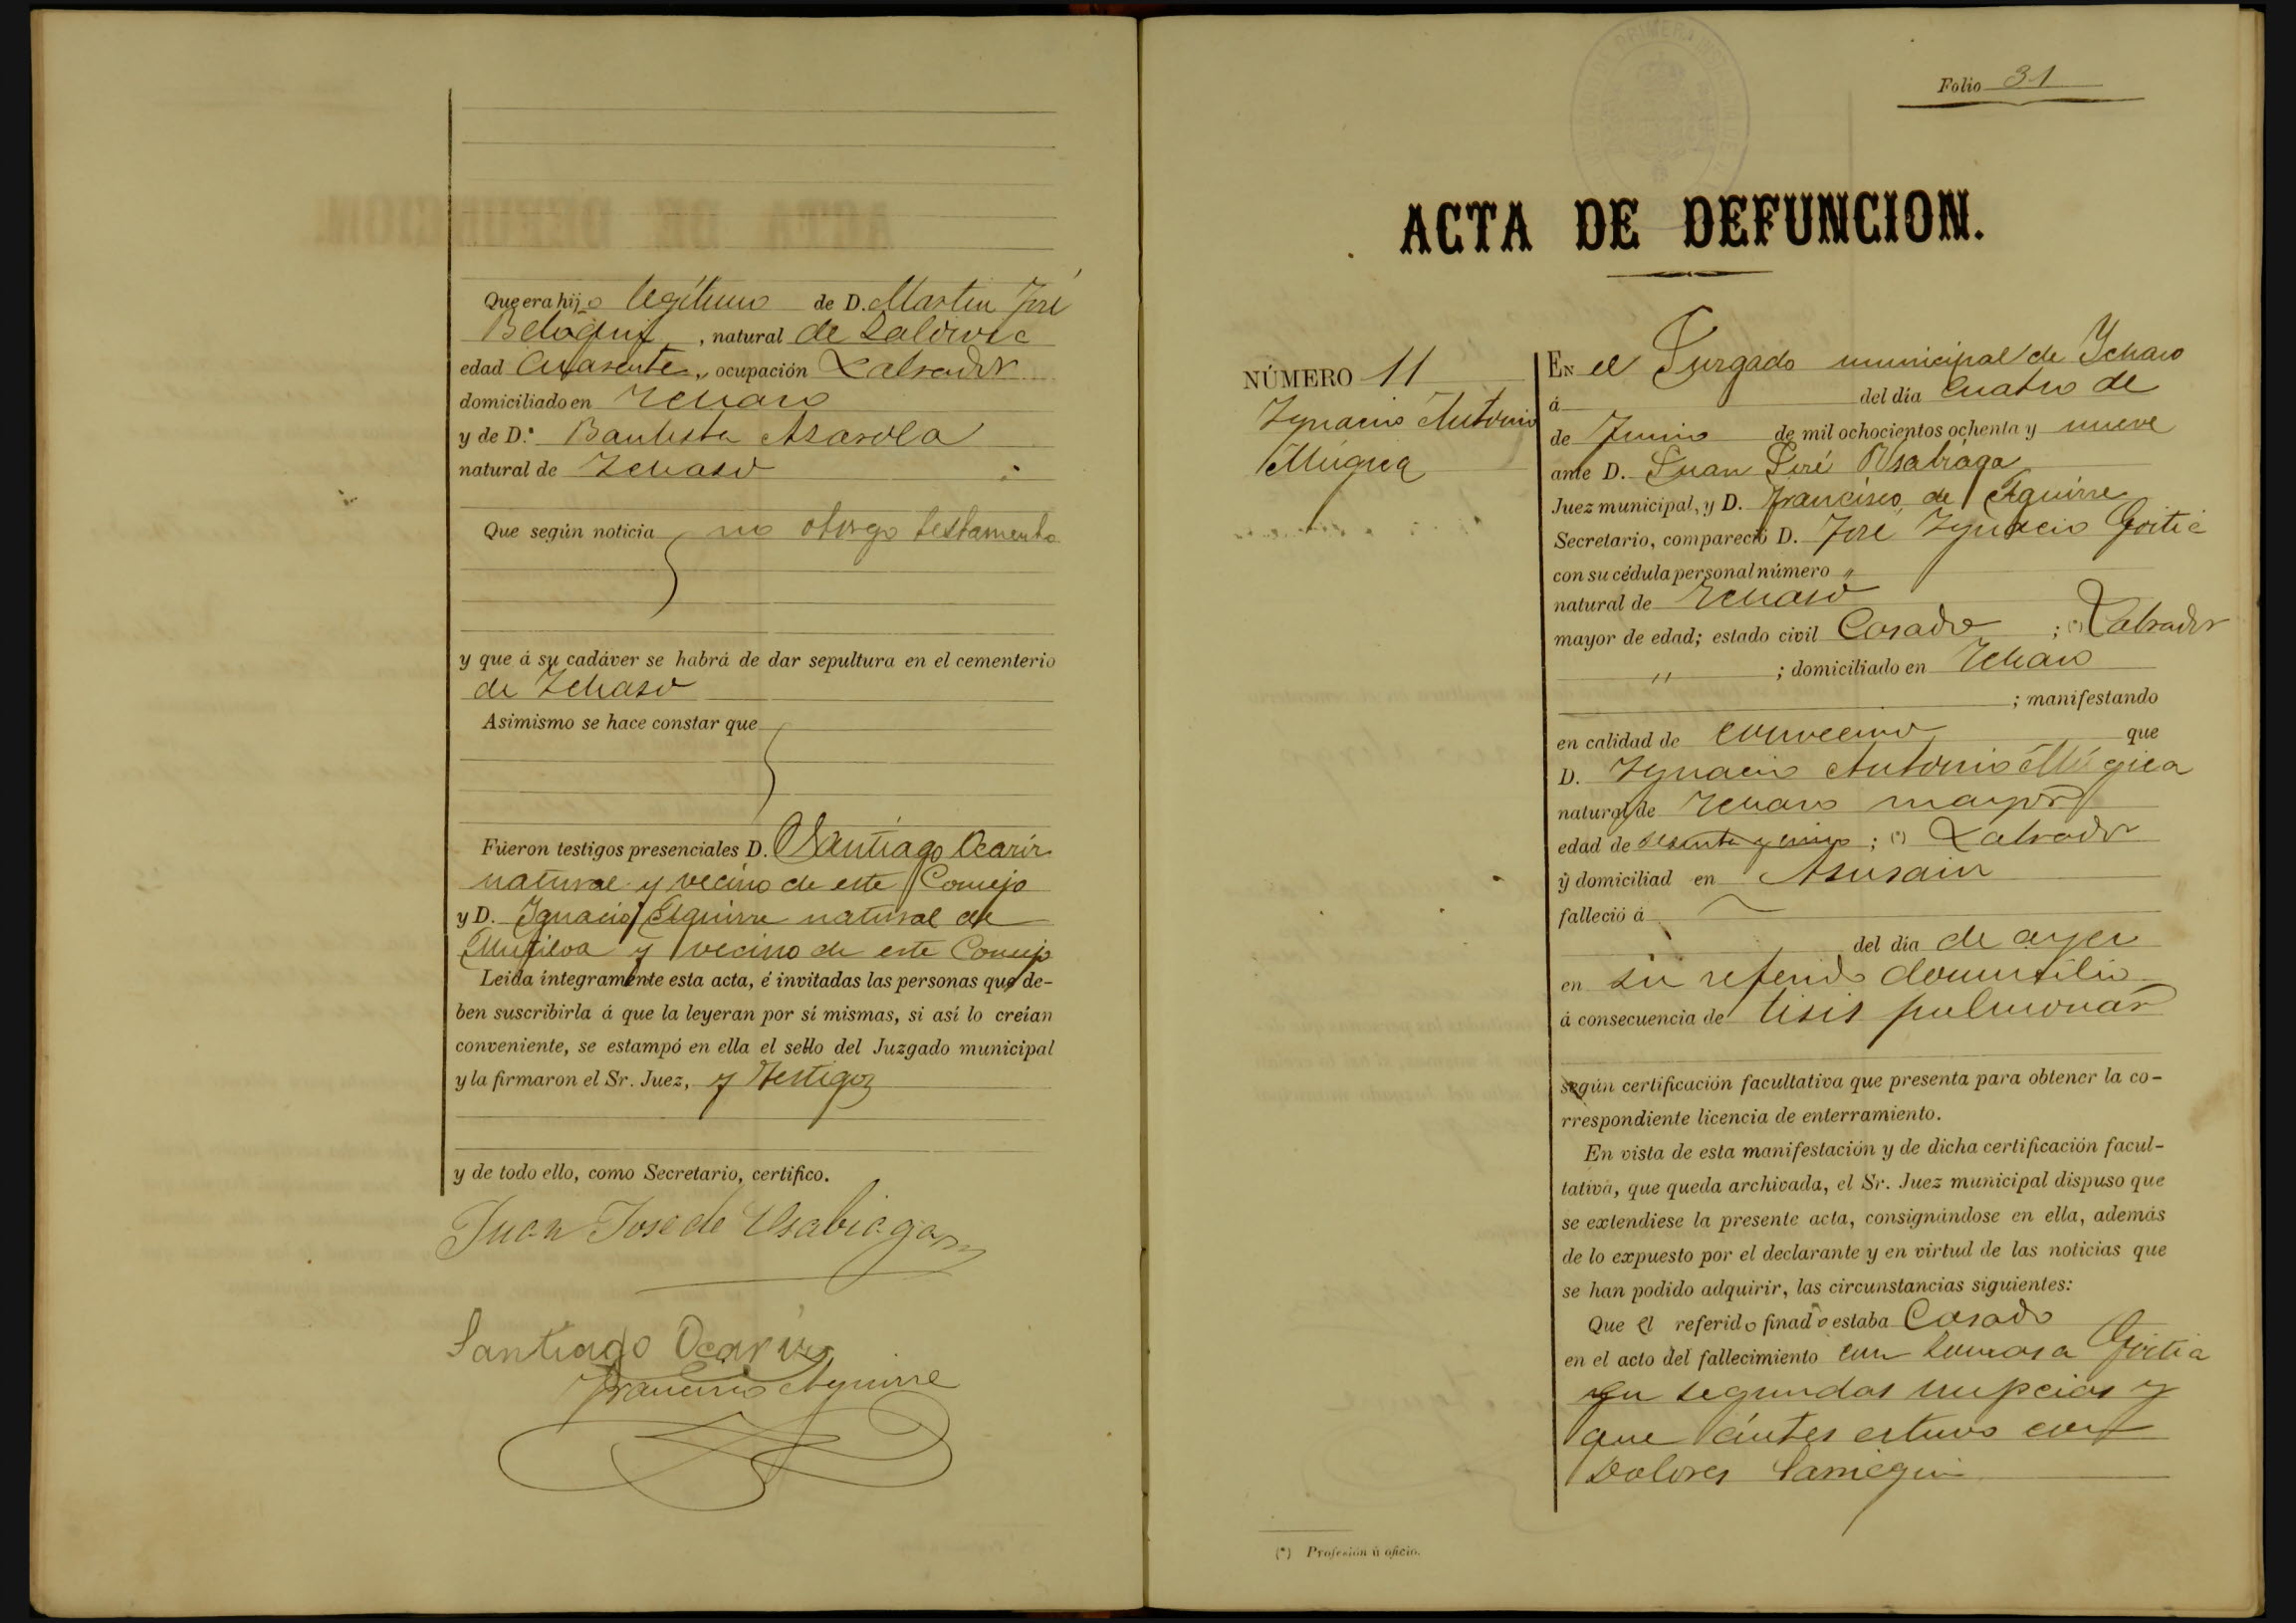 Que era hijo legítimo de D. Martin José
Beloqui, natural de Zaldivia
edad cuarenta, ocupación Labrador
domiciliado en Ychaso
y de D.ª Bautista Asarola
natural de Ychaso
Que según noticia no otorgo testamento
y que á su cadáver se habrá de dar sepultura en el cementerio
de Ychaso
Asimismo se hace constar que
Fueron testigos presenciales D. Santiago Ocariz
natural y vecino de este Consejo
y D. Ignacio Aguirre natural de
Mutiloa y vecino de este Consejo
Leida íntegramente esta acta, é invitadas las personas que de-
ben suscribirla á que la leyeran por sí mismas, si así lo creían
conveniente, se estampó en ella el sello del Juzgado municipal
y la firmaron el Sr. Juez, y testigos
y de todo ello, como Secretario, certifico.
Juan Jose de Usabiaga
Santiago Ocariz
Francisco Aguirre
Folio 31
ACTA DE DEFUNCION.
NÚMERO 11
Ygnacio Antonio
Múgica
En el Jurgado municipal de Ychaso
á del día cuatro de
de Junio de mil ochocientos ochenta y nueve
ante D. Juan José Usabiaga
Juez municipal, y D. Francisco de Aguirre
Secretario, compareció D. José Ygnacio Goitia
con su cédula personal número "
natural de Ychaso
mayor de edad; estado civil Casado ; (*) Labrador
" ; domiciliado en Ychaso
; manifestando
en calidad de convecino que
D. Ygnacio Antonio Múgica
natural de Ychaso mayor
edad de sesenta y cinco ; (*) Labrador
y domiciliad en Arusain
falleció á
del día de ayer
en su referido domicilio
á consecuencia de tisis pulmonar
según certificación facultativa que presenta para obtener la co-
rrespondiente licencia de enterramiento.
En vista de esta manifestación y de dicha certificación facul-
tativa, que queda archivada, el Sr. Juez municipal dispuso que
se extendiese la presente acta, consignándose en ella, además
de lo expuesto por el declarante y en virtud de las noticias que
se han podido adquirir, las circunstancias siguientes:
Que el referido finado estaba Casado
en el acto del fallecimiento con Goitia
en segundas nupcias y
que ántes estuvo con
Dolores
(*) Profesión ú oficio.